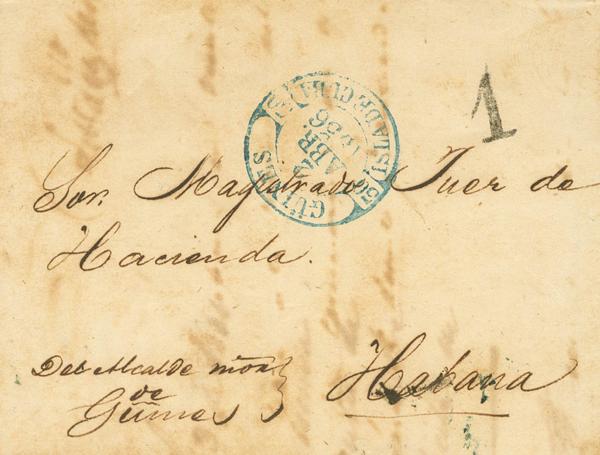 1
GÜINES
ISLA DE CUBA
ABR.
1856
Sor. Magistrado Juez de
Hacienda.
Del Alcalde mor
de
Güines
Habana